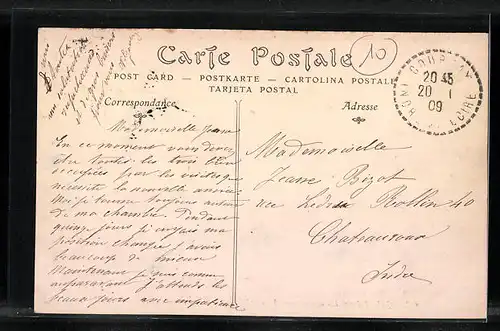 10
Carte Postale
POST CARD — POSTKARTE — CARTOLINA POSTALE
TARJETA POSTAL
20 45
20 1
09
LOIRE
Correspondance
Adresse
Mademoiselle Jeanne
En ce moment vous devez
être toutes les trois bien
occupées par les visites que
nécessite la nouvelle année
Moi je tourne toujours autour
de ma chambre. Pendant
quinze jours je croyais ma
position changée j'avais
beaucoup de mieux
Maintenant je suis comme
auparavant J'attends les
beaux jours avec impatience
Mademoiselle
Jeanne Bizot
rue Ledru Rollin 40
Chateauroux
Indre